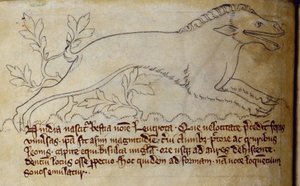 In india nascit᷑ bestia noīe Leucrota. Que uelocitate p̄cedit feras
uniu᷑sas. ipsa est asini magnitudine. c᷑ui clunibꝫ pectore ac cruribus
leonis. capite equi. bisulca ungla. ore usqꝫ ad aures dehiscente.
dentiū locus osse ꝑpetuo. hec quidem ad formam. nā uoce loquentium
sonos emulatur.